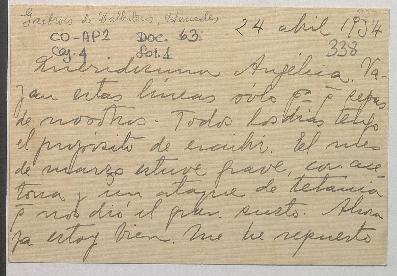 24 abril 1934
CO-AP2 DOC. 63
Caj. 1 Sol. 1
338
Queridísima Angélica. Va-
yan estas líneas sólo pa q sepas
de nosotros. Todos los días tengo
el propósito de escribir. El mes
de marzo estuve grave, con ace-
tona y un ataque de tetania
q nos dió el gran susto. Ahora
ya estoy bien. Me he repuesto